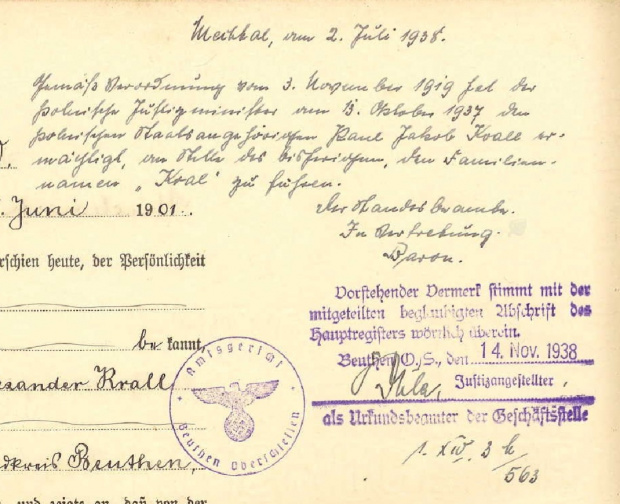 Mechtal, am 2. Juli 1938.
Gemäß Verordnung vom 3. November 1919 hat der
Polnische Justizminister am 13. Oktober 1937 den
polnischen Staatsangehörigen Paul Jakob Krall er-
mächtigt, an Stelle des bisherigen, den Familien-
namen „Kral" zu führen.
Der Standesbeamte.
In Vertretung.
Baron.
Juni 1901.
rschien heute, der Persönlichkeit
be kannt,
xander Krall
dkreis Beuthen,
und zeigte an, daß von der
Vorstehender Vermerk stimmt mit der
mitgeteilten beglaubigten Abschrift des
Hauptregisters wörtlich überein.
Beuthen O.S., den 14. Nov. 1938
Justizangestellter
als Urkundsbeamter der Geschäftsstelle
Amtsgericht
Beuthen Oberschlesien
563